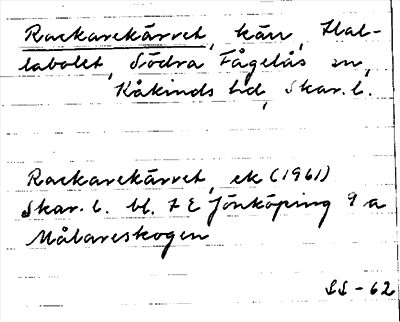 Rackarekärret, kärr, Hal-
labolet, Södra Fågelås sn,
Kåkinds hd, Skar. l.
Rackarekärret, ek (1961)
Skar. l. bl. 7 E Jönköping 9 a
Målareskogen
SS-62